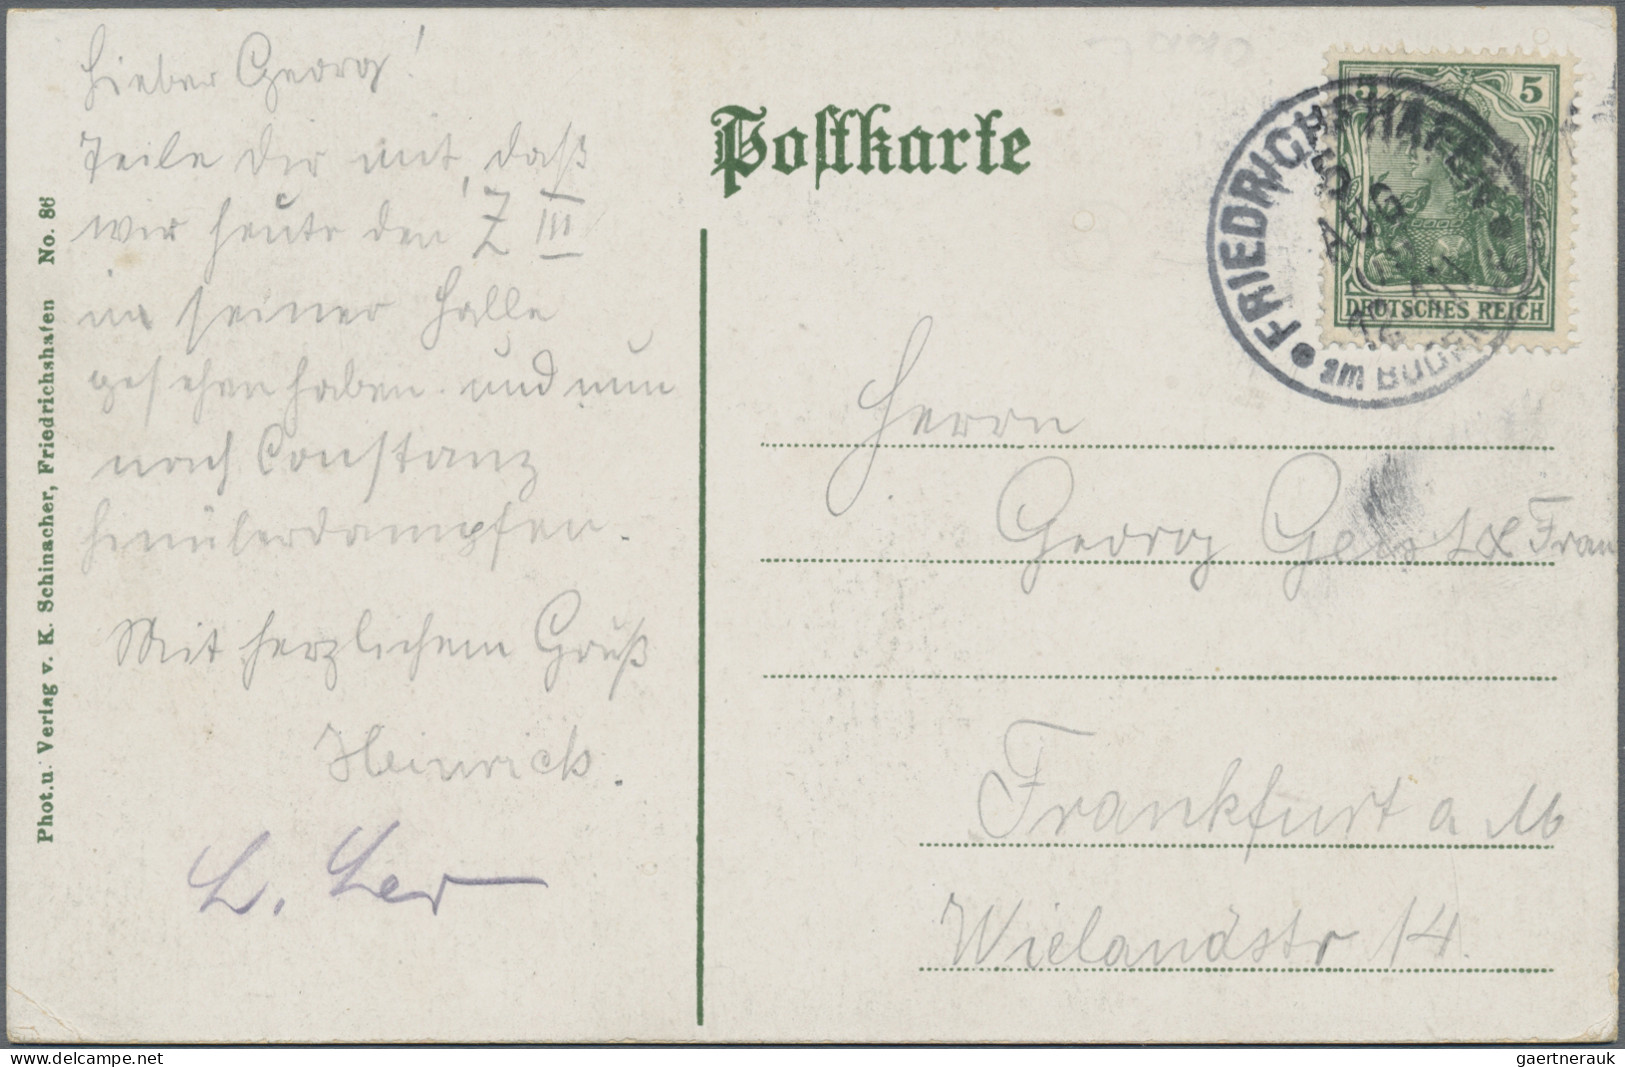 Lieber Georg!
Teile Dir mit, daß
wir heute den Z III
in seiner Halle
gesehen haben und nun
nach Constanz
hinüberdampfen.
Mit herzlichem Gruß
Heinrich.
Phot. u. Verlag v. K. Schinacher, Friedrichshafen No. 86
Postkarte
5 5
DEUTSCHES REICH
FRIEDRICHSHAFEN
AUG
am BODEN
Herrn
Georg & Frau
Frankfurt a M
Wielandstr 14.
www.delcampe.net
gaertnerauk